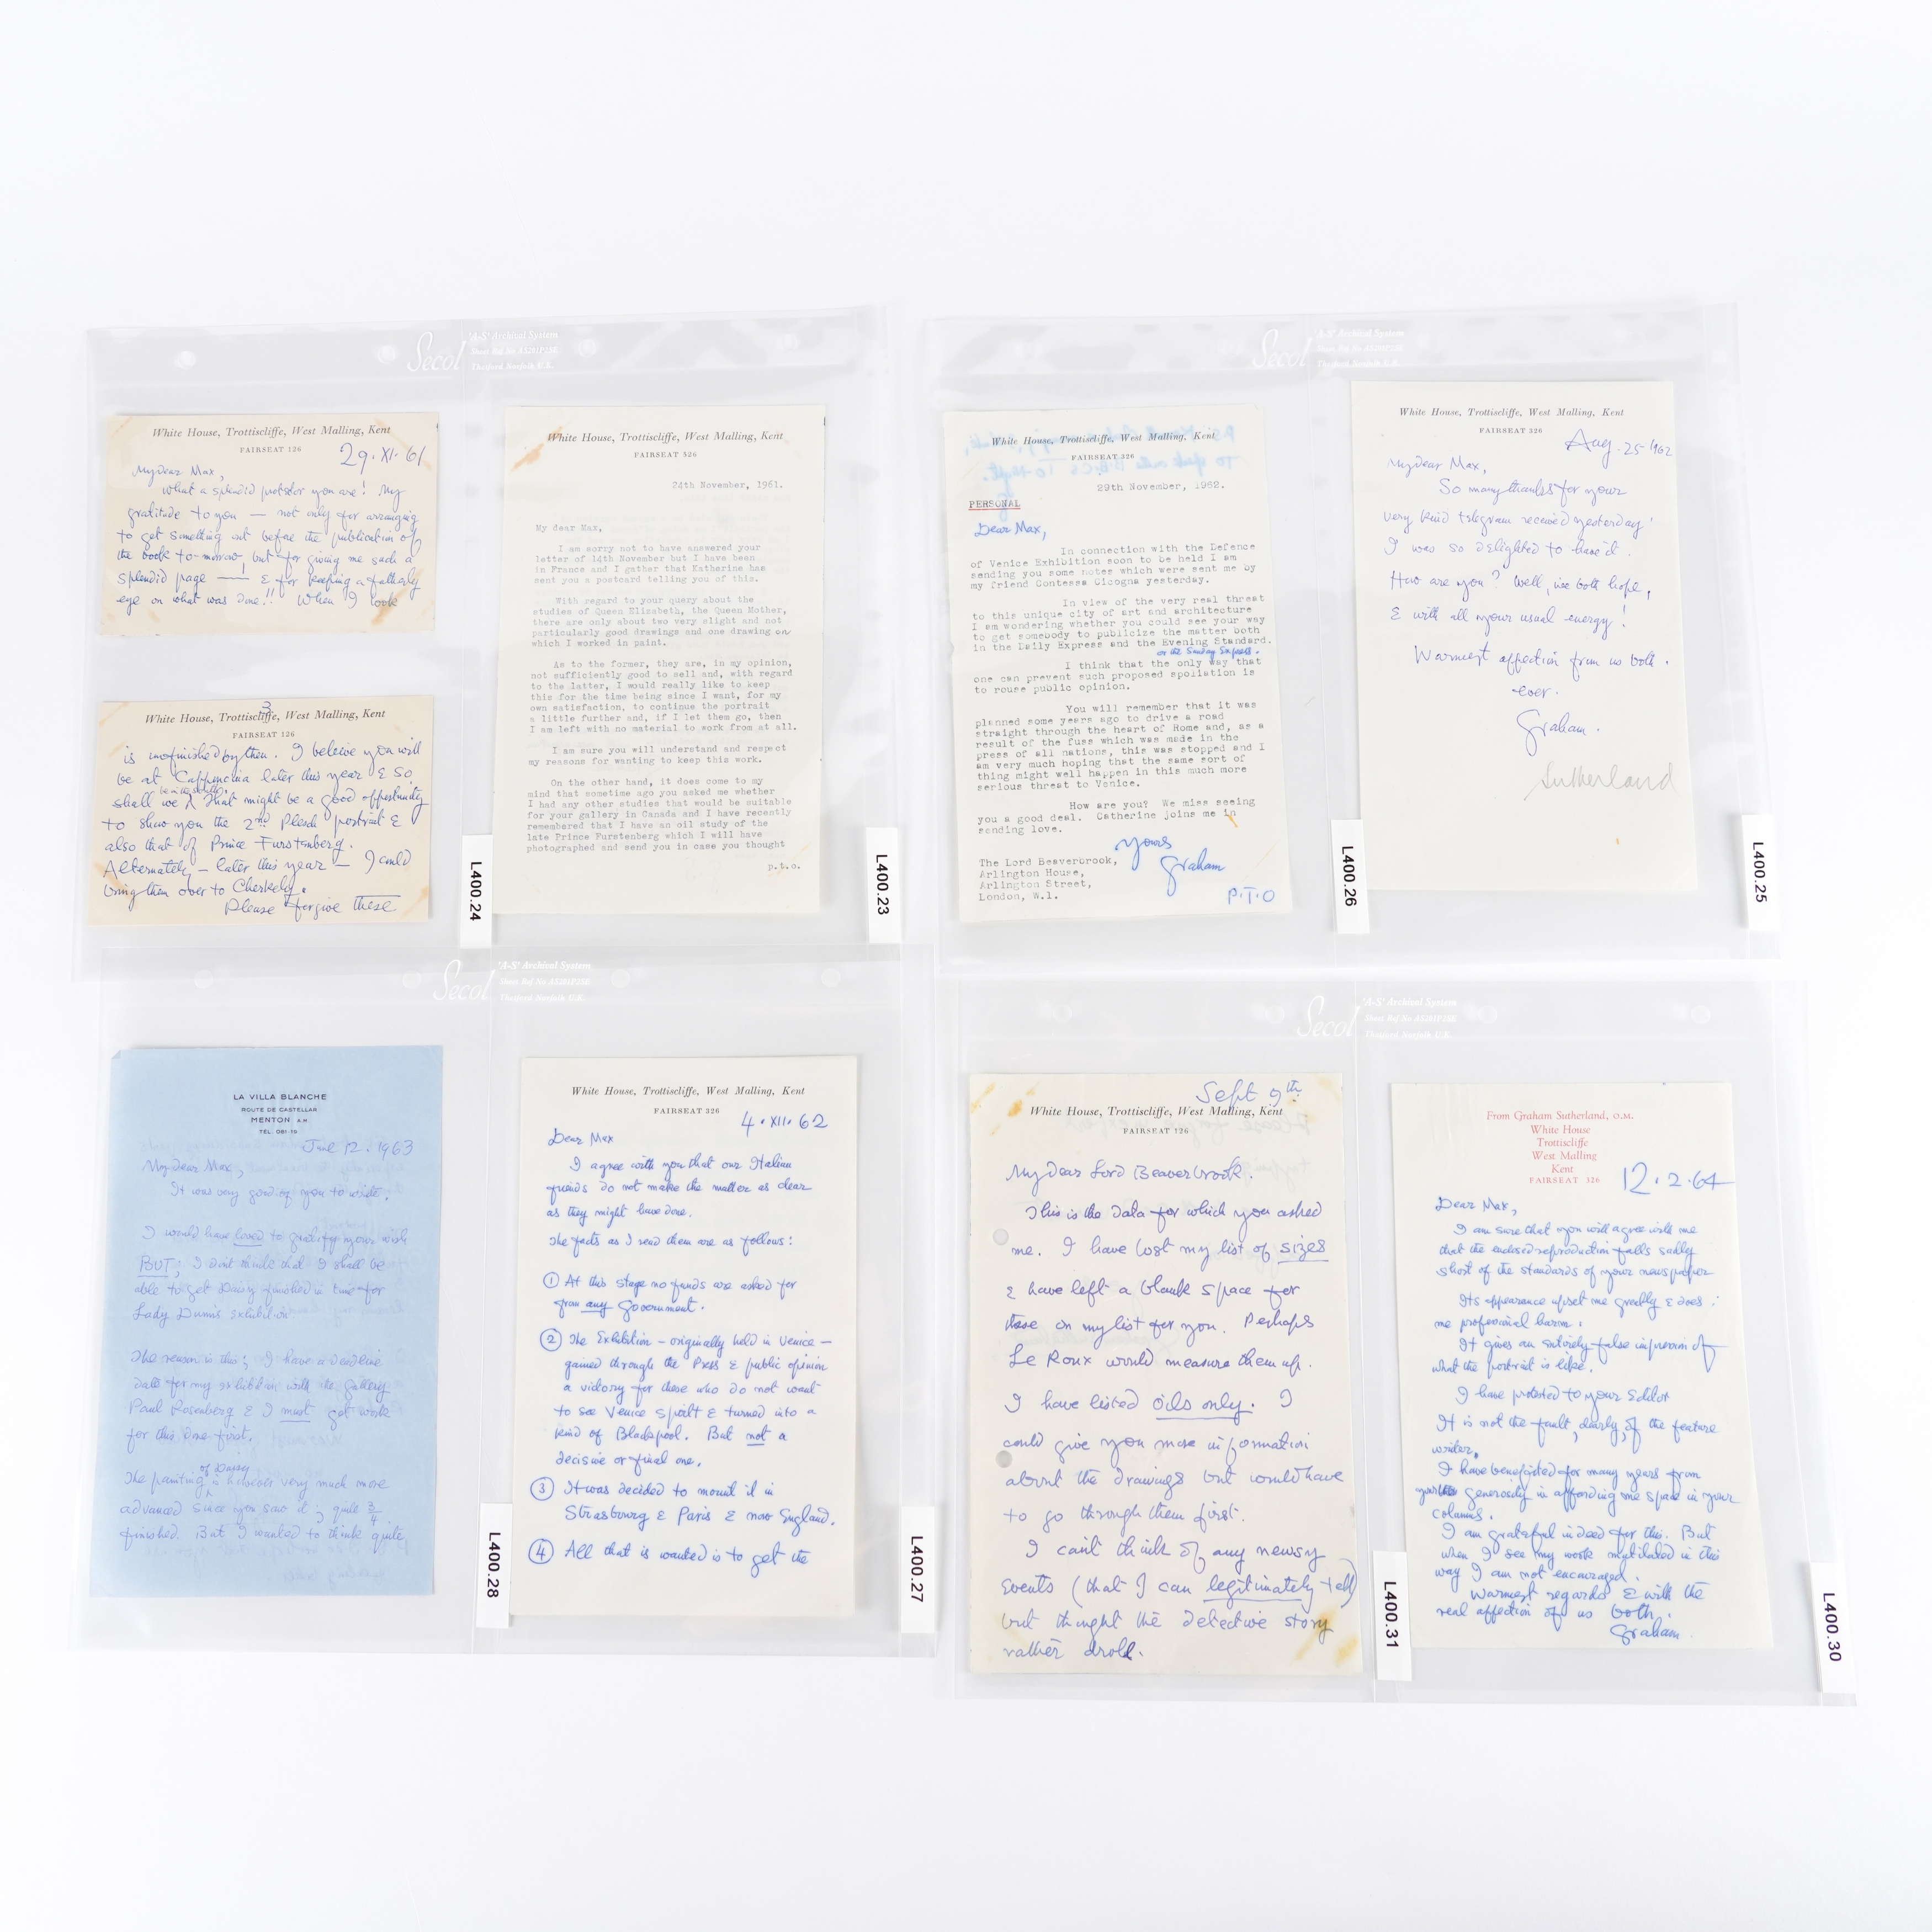 Secol
'A-S' Archival System
Sheet Ref No AS291P2SE
Thetford Norfolk U.K.
White House, Trottiscliffe, West Malling, Kent
FAIRSEAT 126
29·XI·61
My dear Max,
What a splendid protector you are! My
gratitude to you — not only for arranging
to get something out before the publication of
the book to-morrow, but for giving me such a
splendid page — & for keeping a fatherly
eye on what was done!! When I look
3
White House, Trottiscliffe, West Malling, Kent
FAIRSEAT 126
is unfinished by then. I believe you will
be at Capponcina later this year & so
shall we that might be a good opportunity
to show you the 2nd Plesch portrait &
also that of Prince Furstenberg.
Alternately – later this year – I could
bring them over to Cherkely.
Please forgive these
L400.24
White House, Trottiscliffe, West Malling, Kent
FAIRSEAT 326
24th November, 1961.
My dear Max,
I am sorry not to have answered your
letter of 14th November but I have been
in France and I gather that Katharine has
sent you a postcard telling you of this.
With regard to your query about the
studies of Queen Elizabeth, the Queen Mother,
there are only about two very slight and not
particularly good drawings and one drawing on
which I worked in paint.
As to the former, they are, in my opinion,
not sufficiently good to sell and, with regard
to the latter, I would really like to keep
this for the time being since I want, for my
own satisfaction, to continue the portrait
a little further and, if I let them go, then
I am left with no material to work from at all.
I am sure you will understand and respect
my reasons for wanting to keep this work.
On the other hand, it does come to my
mind that sometime ago you asked me whether
I had any other studies that would be suitable
for your gallery in Canada and I have recently
remembered that I have an oil study of the
late Prince Furstenberg which I will have
photographed and send you in case you thought
p.t.o.
L400.23
Secol
'A-S' Archival System
Sheet Ref No AS291P2SE
Thetford Norfolk U.K.
White House, Trottiscliffe, West Malling, Kent
FAIRSEAT 326
29th November, 1962.
PERSONAL
Dear Max,
In connection with the Defence
of Venice Exhibition soon to be held I am
sending you some notes which were sent me by
my friend Contessa Cicogna yesterday.
In view of the very real threat
to this unique city of art and architecture
I am wondering whether you could see your way
to get somebody to publicize the matter both
in the Daily Express and the Evening Standard.
or the Sunday Express.
I think that the only way that
one can prevent such proposed spoliation is
to rouse public opinion.
You will remember that it was
planned some years ago to drive a road
straight through the heart of Rome and, as a
result of the fuss which was made in the
press of all nations, this was stopped and I
am very much hoping that the same sort of
thing might well happen in this much more
serious threat to Venice.
How are you? We miss seeing
you a good deal. Catherine joins me in
sending love.
Yours
Graham
The Lord Beaverbrook,
Arlington House,
Arlington Street,
London, W.1.
P.T.O
L400.26
White House, Trottiscliffe, West Malling, Kent
FAIRSEAT 326
Aug. 25·1962
My dear Max,
So many thanks for your
very kind telegram received yesterday!
I was so delighted to have it.
How are you? Well, we both hope,
& with all your usual energy!
Warmest affection from us both.
Ever.
Graham.
Sutherland
L400.25
Secol
'A-S' Archival System
Sheet Ref No AS291P2SE
Thetford Norfolk U.K.
LA VILLA BLANCHE
ROUTE DE CASTELLAR
MENTON A.M
TEL. 081-75
June 12·1963
My dear Max,
It was very good of you to write.
I would have loved to gratify your wish
BUT; I don't think that I shall be
able to get Daisy finished in time for
Lady Dunn's exhibition.
The reason is this; I have a deadline
date for my exhibition with the gallery
Paul Rosenberg & I must get work
for this done first.
The painting of Daisy is however very much more
advanced since you saw it, quite 3/4
finished. But I wanted to think quite
L400.28
White House, Trottiscliffe, West Malling, Kent
FAIRSEAT 326
4·XII·62
Dear Max
I agree with you that our Italian
friends do not make the matter as clear
as they might have done.
The facts as I read them are as follows:
① At this stage no funds are asked for
from any Government.
② The Exhibition – originally held in Venice –
gained through the Press & public opinion
a victory for those who do not want
to see Venice spoilt & turned into a
kind of Blackpool. But not a
decisive or final one.
③ It was decided to mount it in
Strasbourg & Paris & now England.
④ All that is wanted is to get the
L400.27
Secol
'A-S' Archival System
Sheet Ref No AS291P2SE
Thetford Norfolk U.K.
Sept 9th
White House, Trottiscliffe, West Malling, Kent
FAIRSEAT 126
My dear Lord Beaverbrook.
This is the data for which you asked
me. I have lost my list of sizes
& have left a blank space for
these on my list for you. Perhaps
Le Roux would measure them up.
I have listed oils only. I
could give you more information
about the drawings but would have
to go through them first.
I can't think of any newsy
events (that I can legitimately tell)
but thought the detective story
rather droll.
L400.31
From Graham Sutherland, O.M.
White House
Trottiscliffe
West Malling
Kent
FAIRSEAT 326
12·2·64
Dear Max,
I am sure that you will agree with me
that the enclosed reproduction falls sadly
short of the standards of your newspaper
Its appearance upset me greatly & does
me professional harm.
It gives an entirely false impression of
what the portrait is like.
I have protested to your Editor
It is not the fault, clearly, of the feature
writer.
I have benefited for many years from
your generosity in affording me space in your
columns.
I am grateful indeed for this. But
when I see my work mutilated in this
way I am not encouraged.
Warmest regards & with the
real affection of us both.
Graham.
L400.30